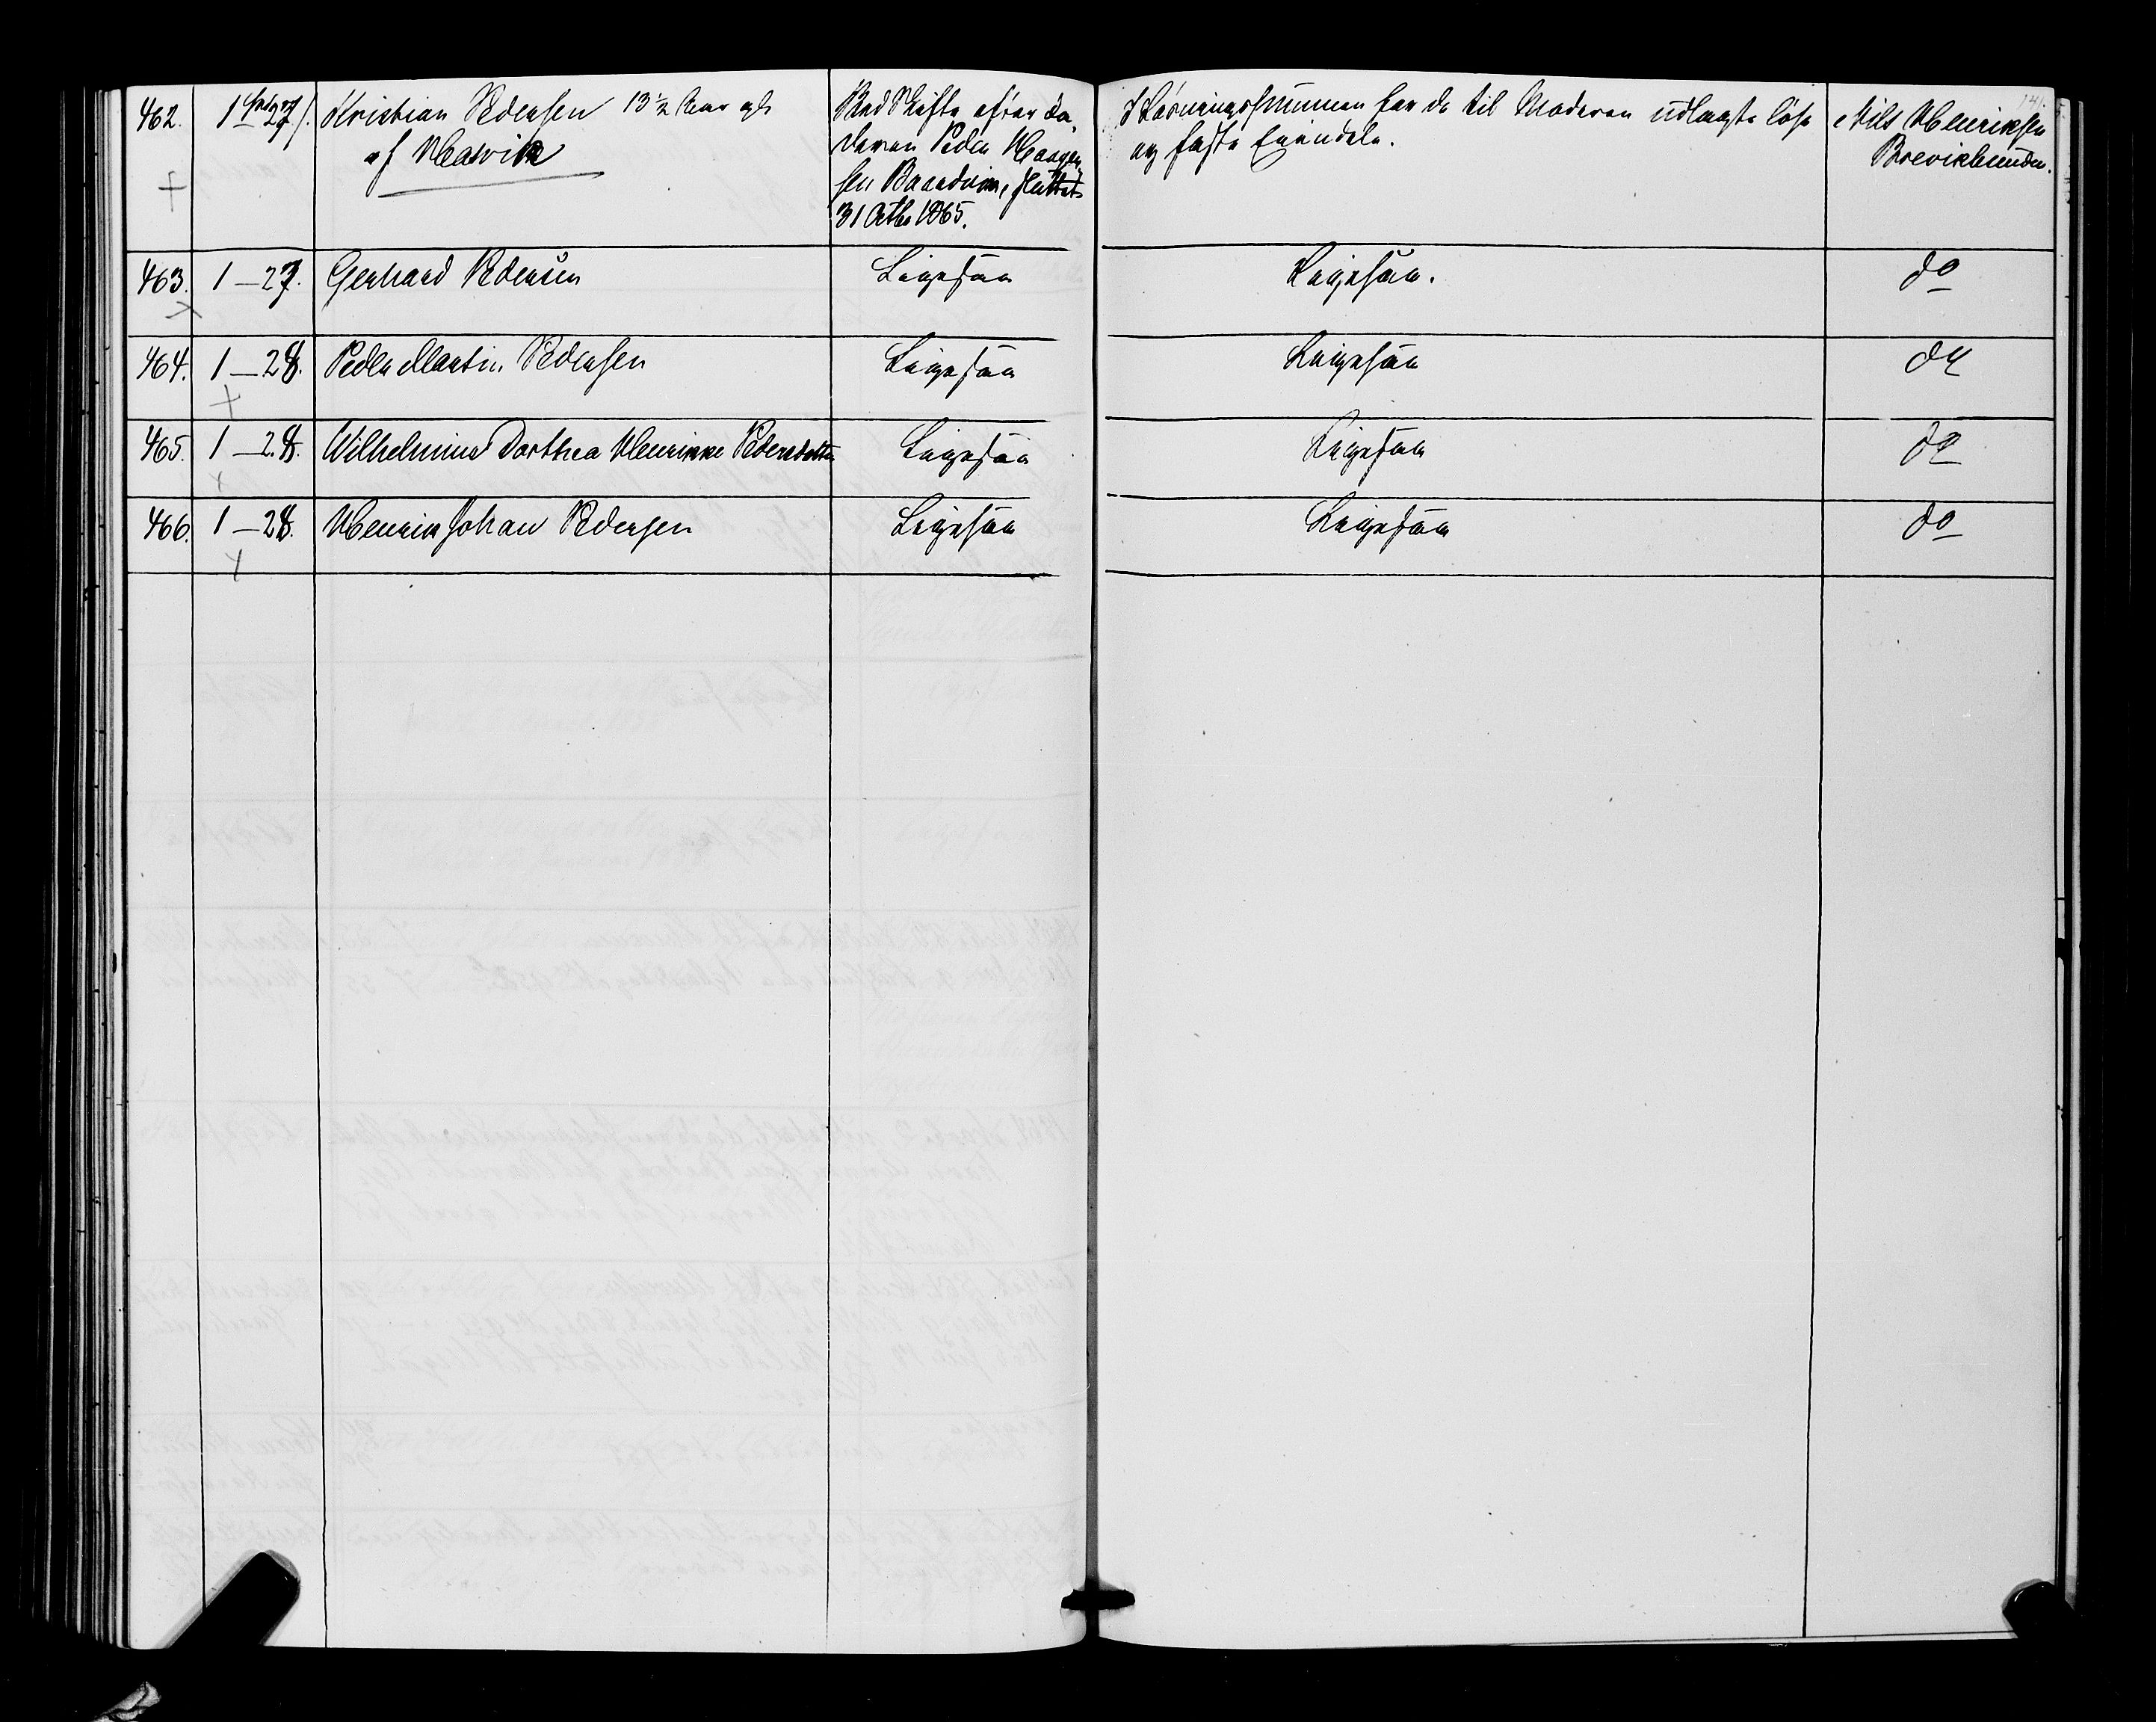 462. 1 27/. Kristian Pedersen 13 1/2 Aar gl
af Hasvik
Ved Skifte efter Fa-
deren Peder Haagen-
sen Braadvin, sluttet
31 Octbr 1865.
I Løsningssummen for de til Moderen udlagte løse
og faste Eiendele.
Nils Henriksen
Brevikbunden.
463. 1 — 27. Gerhard Pedersen Ligesaa Ligesaa. do
464. 1 — 28. Peder Martin Pedersen Ligesaa Ligesaa do
465. 1 — 28. Wilhelmine Dorthea Henrikke Pedersdatter Ligesaa Ligesaa do
466. 1 — 28. Henrik Johan Pedersen Ligesaa Ligesaa do